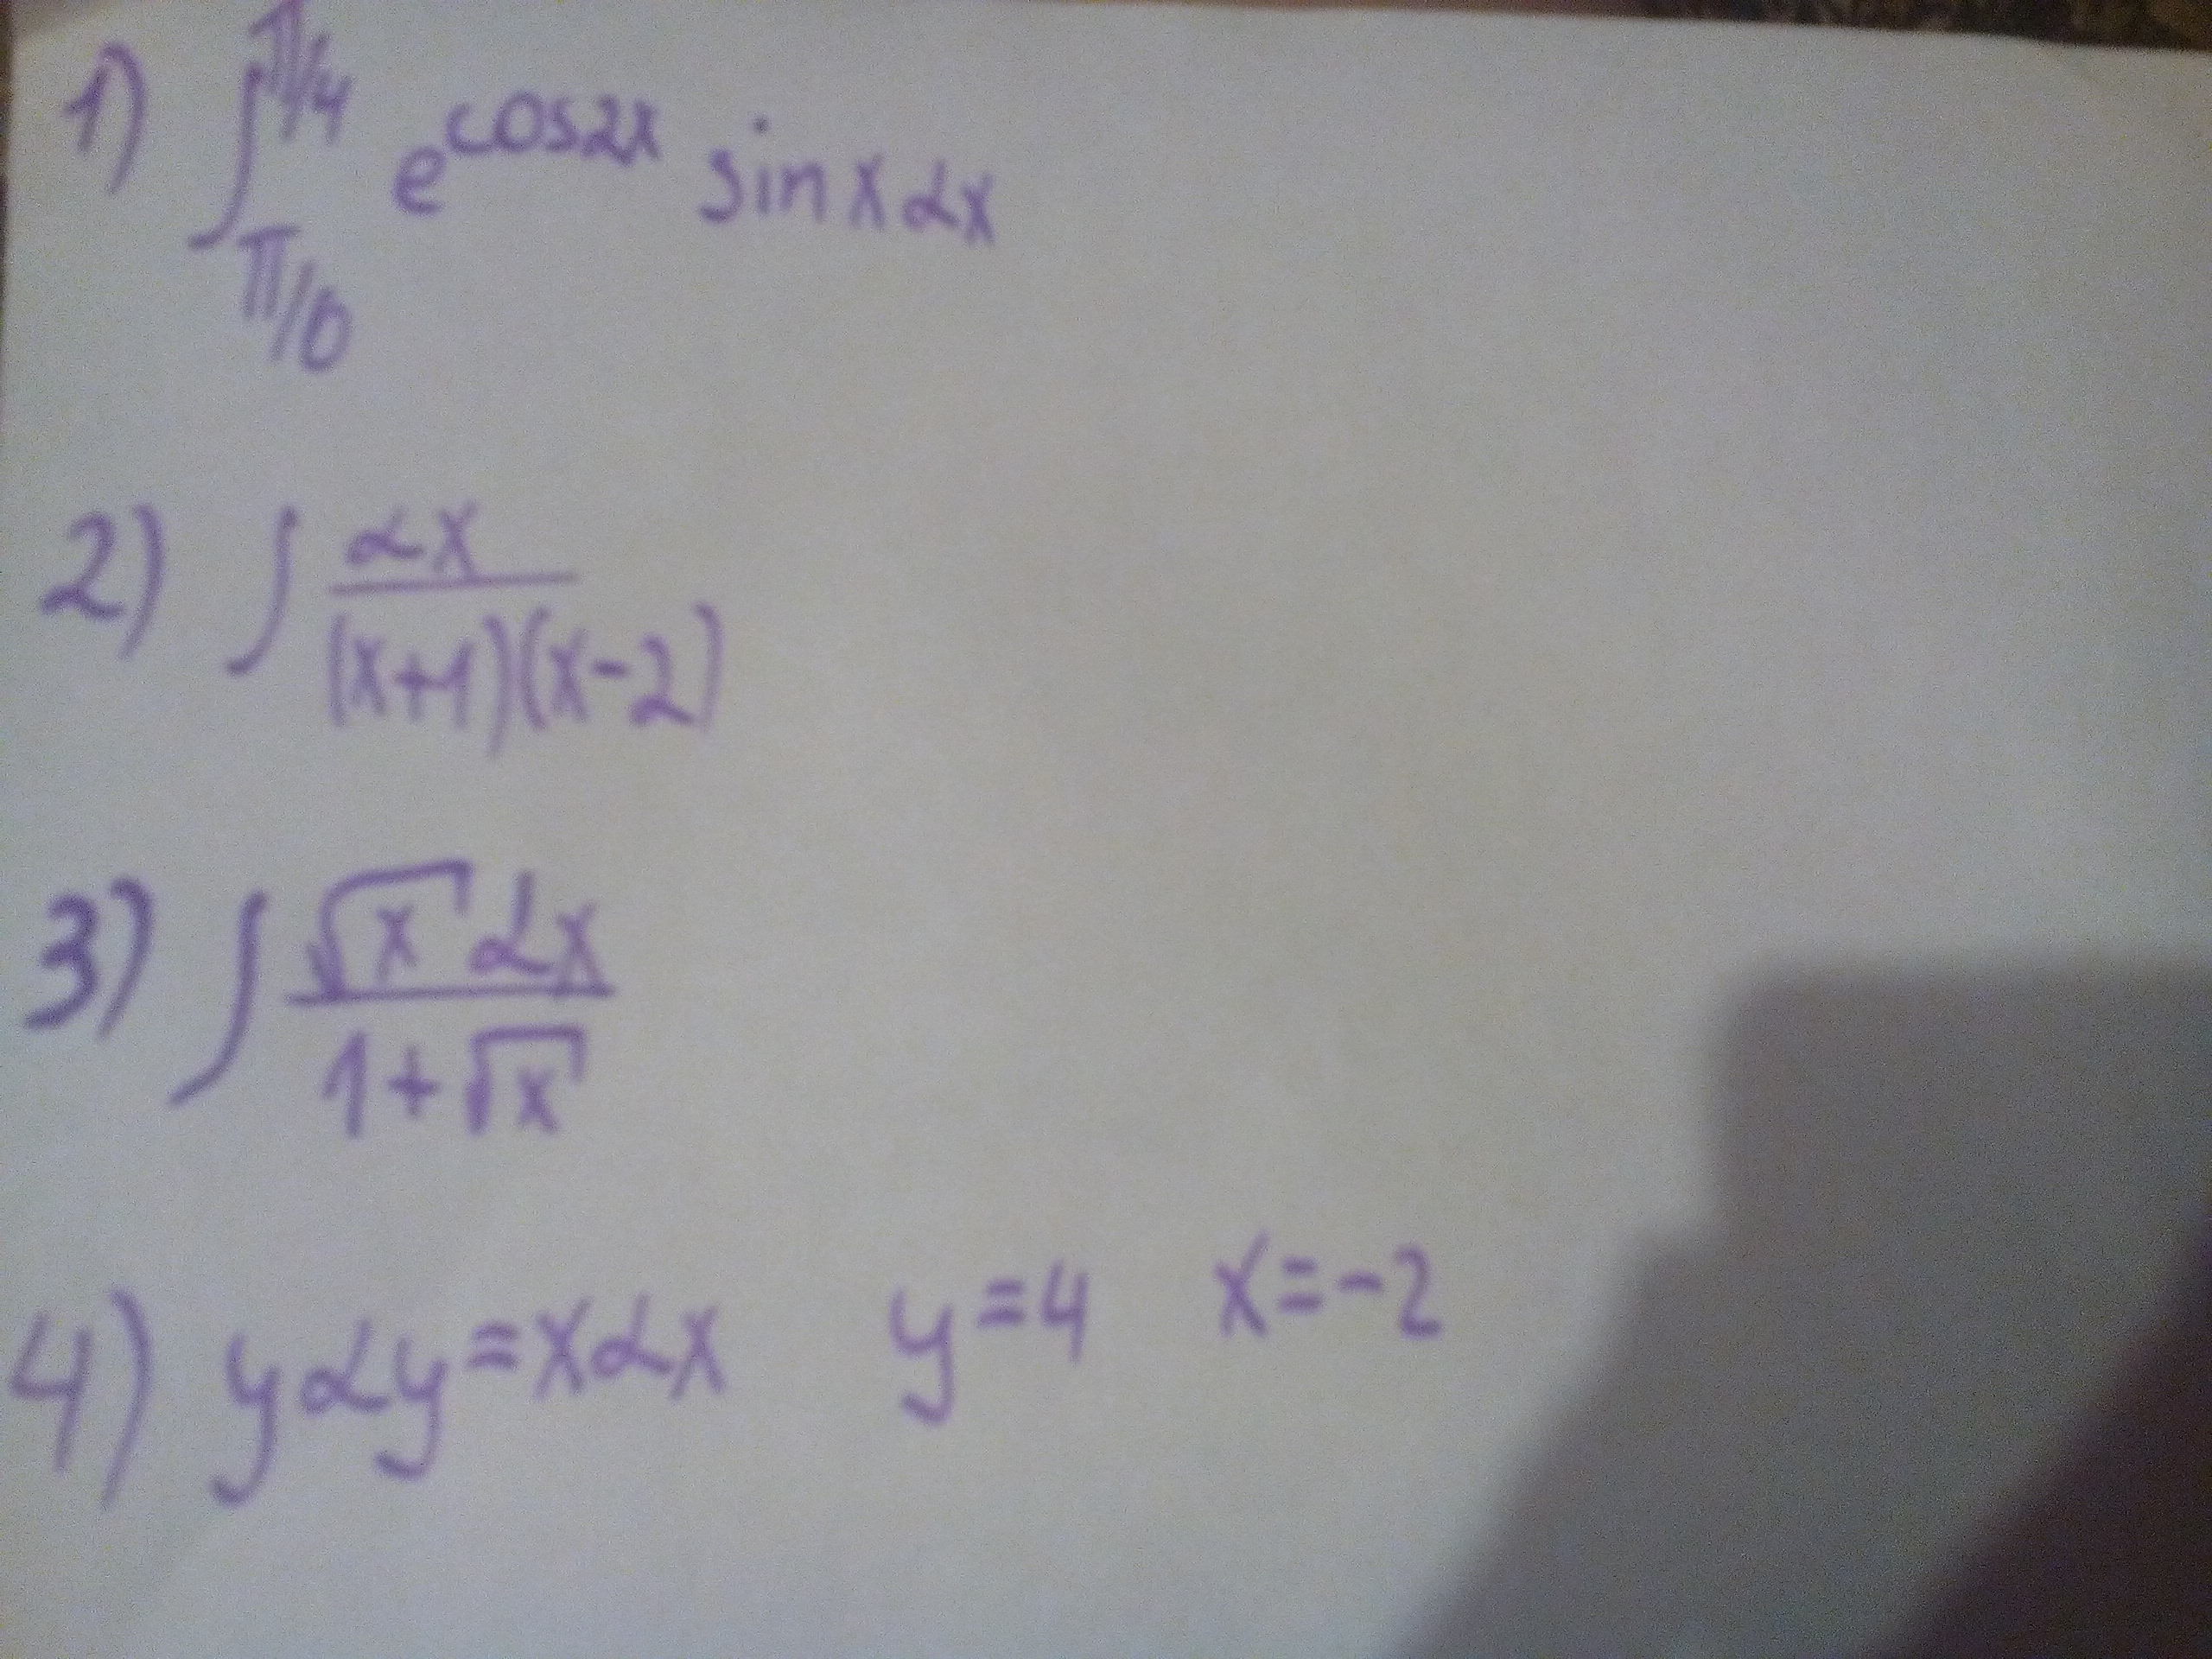 1) ∫_{π/0}^{π/4} e^{cos2x} sin x dx
2) ∫ dx / (x+1)(x-2)
3) ∫ √x dx / 1+√x
4) ydy=xdx y=4 x=-2